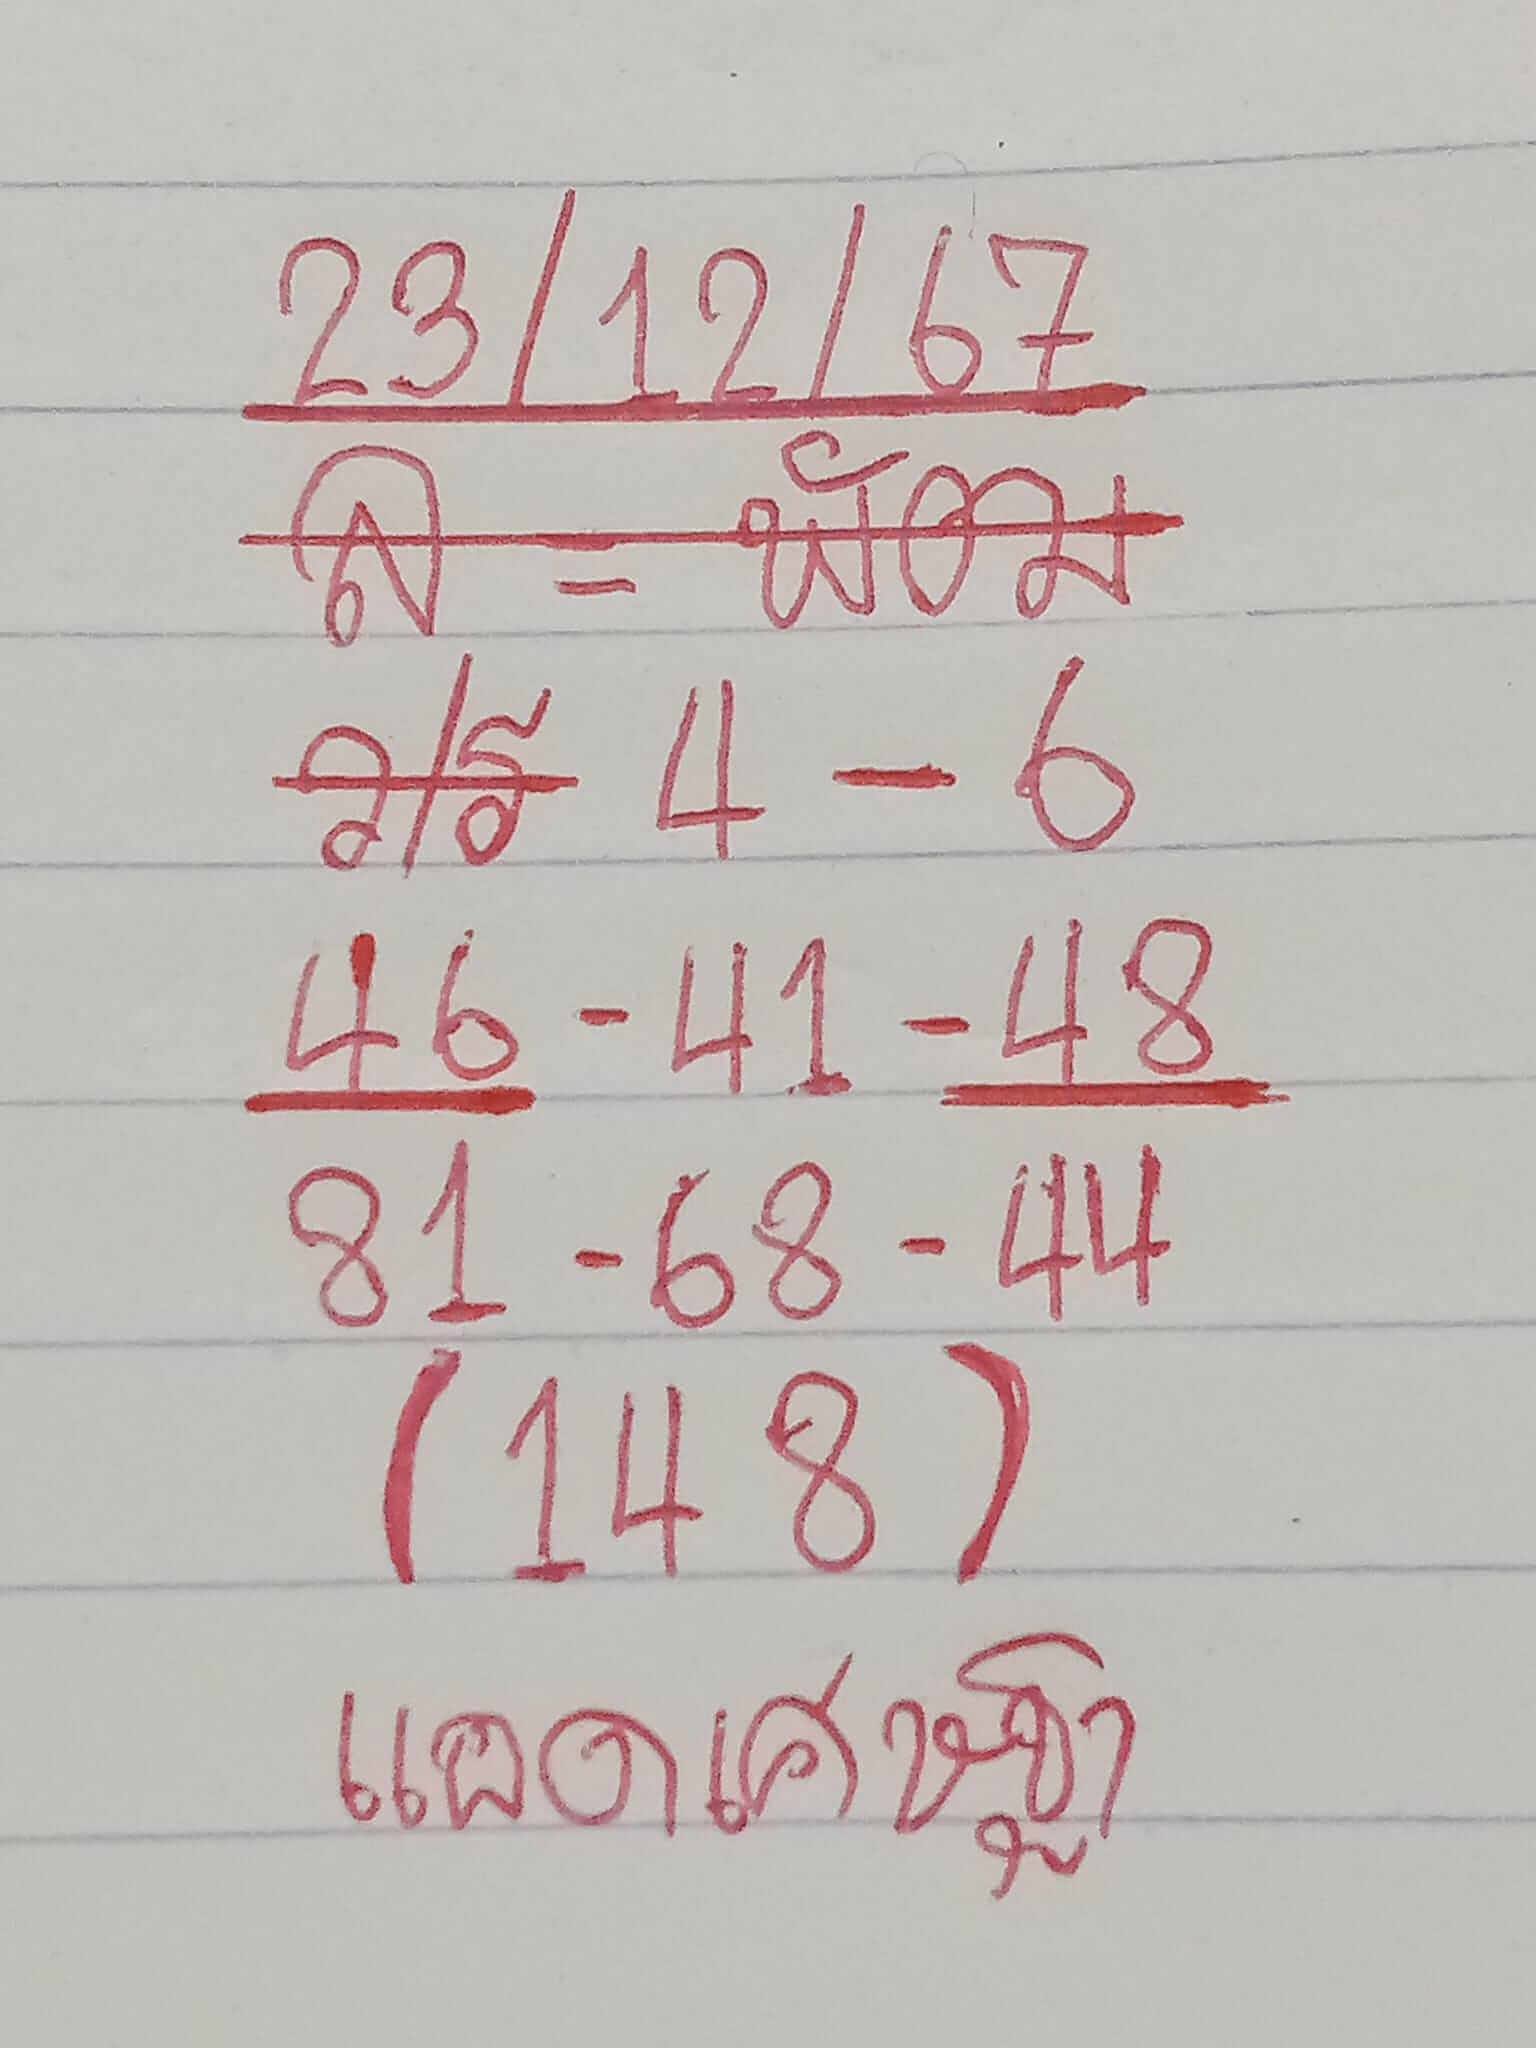 23/12/67
ล = พัฒม
ว/ร 4 - 6
46 - 41 - 48
81 - 68 - 44
(148)
แอดเศษฐา